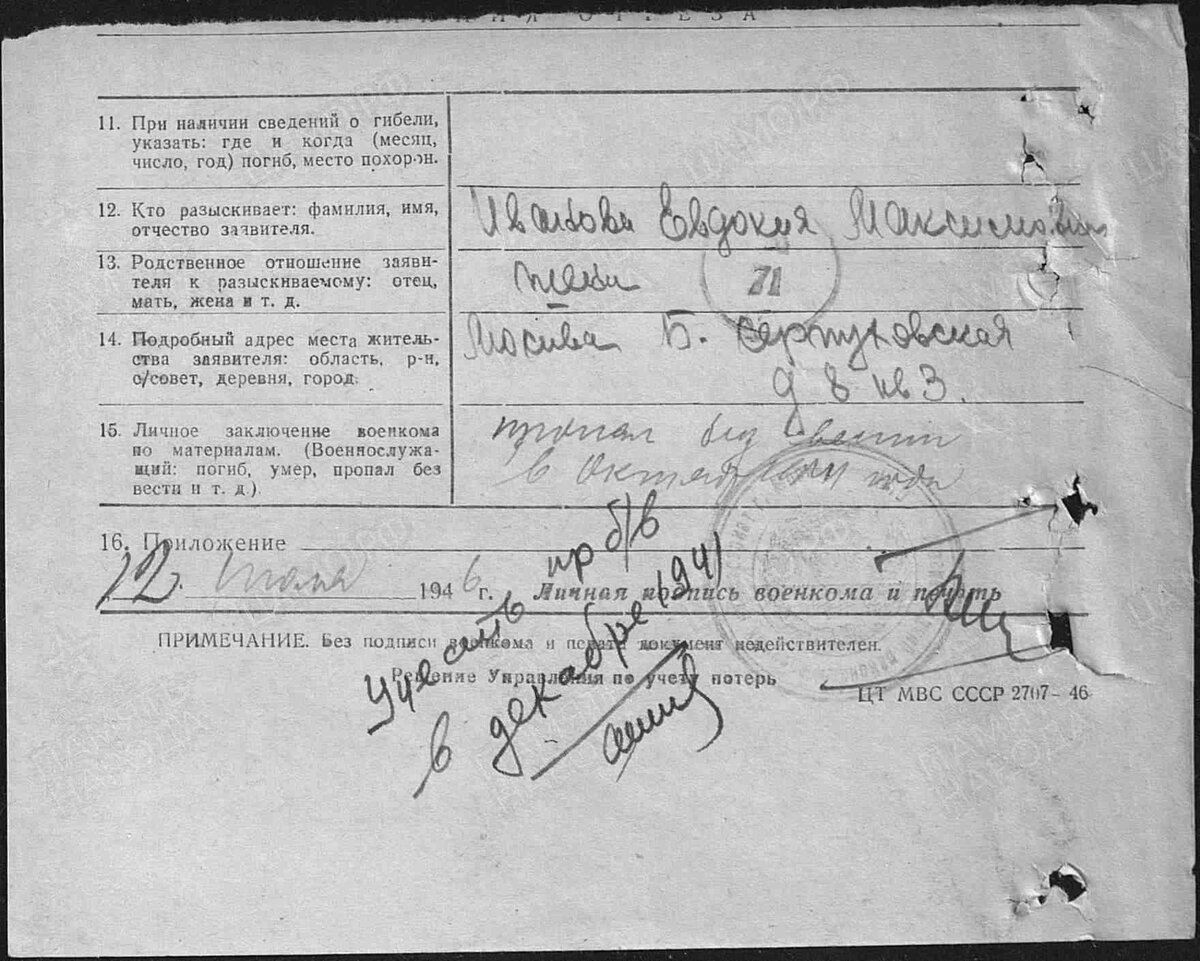 ЛИНИЯ ОТРЕЗА
11. При наличии сведений о гибели,
указать: где и когда (месяц,
число, год) погиб, место похорон.
12. Кто разыскивает: фамилия, имя,
отчество заявителя.
Иванова Евдокия Максимовна
13. Родственное отношение заяви-
теля к разыскиваемому: отец,
мать, жена и т. д.
жена
71
14. Подробный адрес места житель-
ства заявителя: область, р-н,
с/совет, деревня, город.
Москва Б. Серпуховская
д 8 кв 3.
15. Личное заключение военкома
по материалам. (Военнослужа-
щий: погиб, умер, пропал без
вести и т. д.).
пропал без вести
в Октябре 1941 года
16. Приложение
12. 1946 г. Личная подпись военкома и печать
ПРИМЕЧАНИЕ. Без подписи военкома и печати документ недействителен.
Решение Управления по учету потерь
ЦТ МВС СССР 2707-46
Учесть пр б/в
в декабре 1941